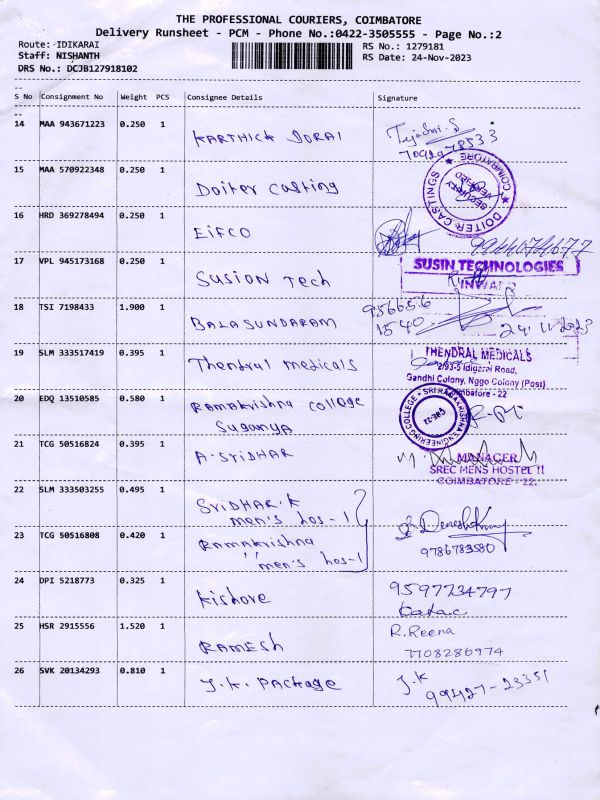 THE PROFESSIONAL COURIERS, COIMBATORE
Delivery Runsheet - PCM - Phone No.:0422-3505555 - Page No.:2
Route: IDIKARAI RS No.: 1279181
Staff: NISHANTH RS Date: 24-Nov-2023
DRS No.: DCJB127918102
S No Consignment No Weight PCS Consignee Details Signature
14 MAA 943671223 0.250 1 KARTHICK DORAI Tejashri.S
15 MAA 570922348 0.250 1 Doiter casting
DOITER CASTINGS COIMBATORE
SECURITY VERIFIED
16 HRD 369278494 0.250 1 EIFCO
17 VPL 945173168 0.250 1 SUSION Tech
SUSIN TECHNOLOGIES
INWARD
18 TSI 7198433 1.900 1 BALASUNDARAM
956656
1540
24.11.2023
19 SLM 333517419 0.395 1 Thendral medicals
THENDRAL MEDICALS
2/93-5 Idigarai Road,
Gandhi Colony, Nggo Colony (Post)
Coimbatore - 22
20 EDQ 13510585 0.580 1 Ramakrishna college
Suganya
SRI RAMAKRISHNA ENGINEERING COLLEGE
CBE-22
21 TCG 50516824 0.395 1 A.SRIDHAR
MANAGER
SREC MENS HOSTEL II
COIMBATORE - 22.
22 SLM 333503255 0.495 1 SRIDHAR.K
men's hos-1
23 TCG 50516808 0.420 1 Ramakrishna
men's hos-1
9786783580
24 DPI 5218773 0.325 1 Kishore 9597734797
25 HSR 2915556 1.520 1 RAMESH R.Reena
7708286974
26 SVK 20134293 0.810 1 J.K. Package J.K
99427-23351